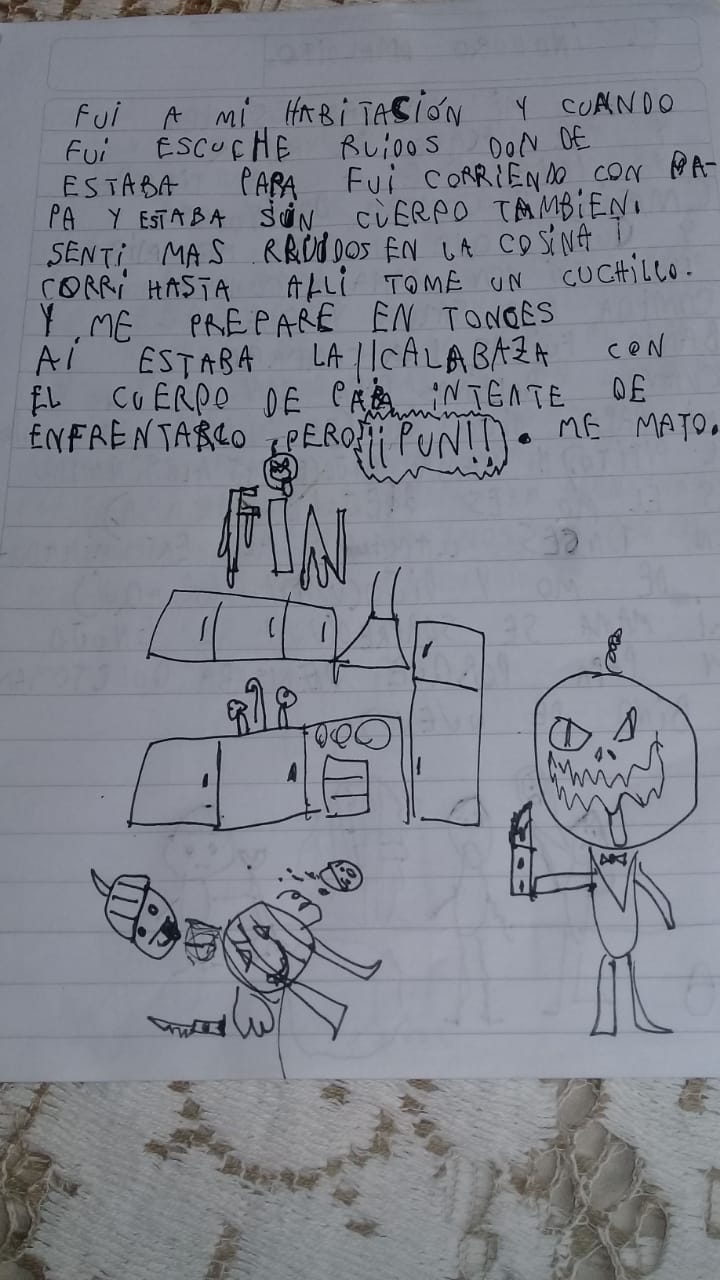 FUI A MI HABITASIÓN Y CUANDO
FUI ESCUCHE RUIDOS DON DE
ESTABA PARA FUI CORRIENDO CON PA-
PA Y ESTABA SIN CUERPO TAMBIEN.
SENTI MAS RAUIDOS EN LA COSINA Y
CORRI HASTA ALLI TOME UN CUCHILLO.
Y ME PREPARE EN TONCES
AI ESTABA LA CALABAZA CON
EL CUERPO DE PAPA INTENTE DE
ENFRENTARLO PERO ¡¡PUN!!. ME MATO.
FIN